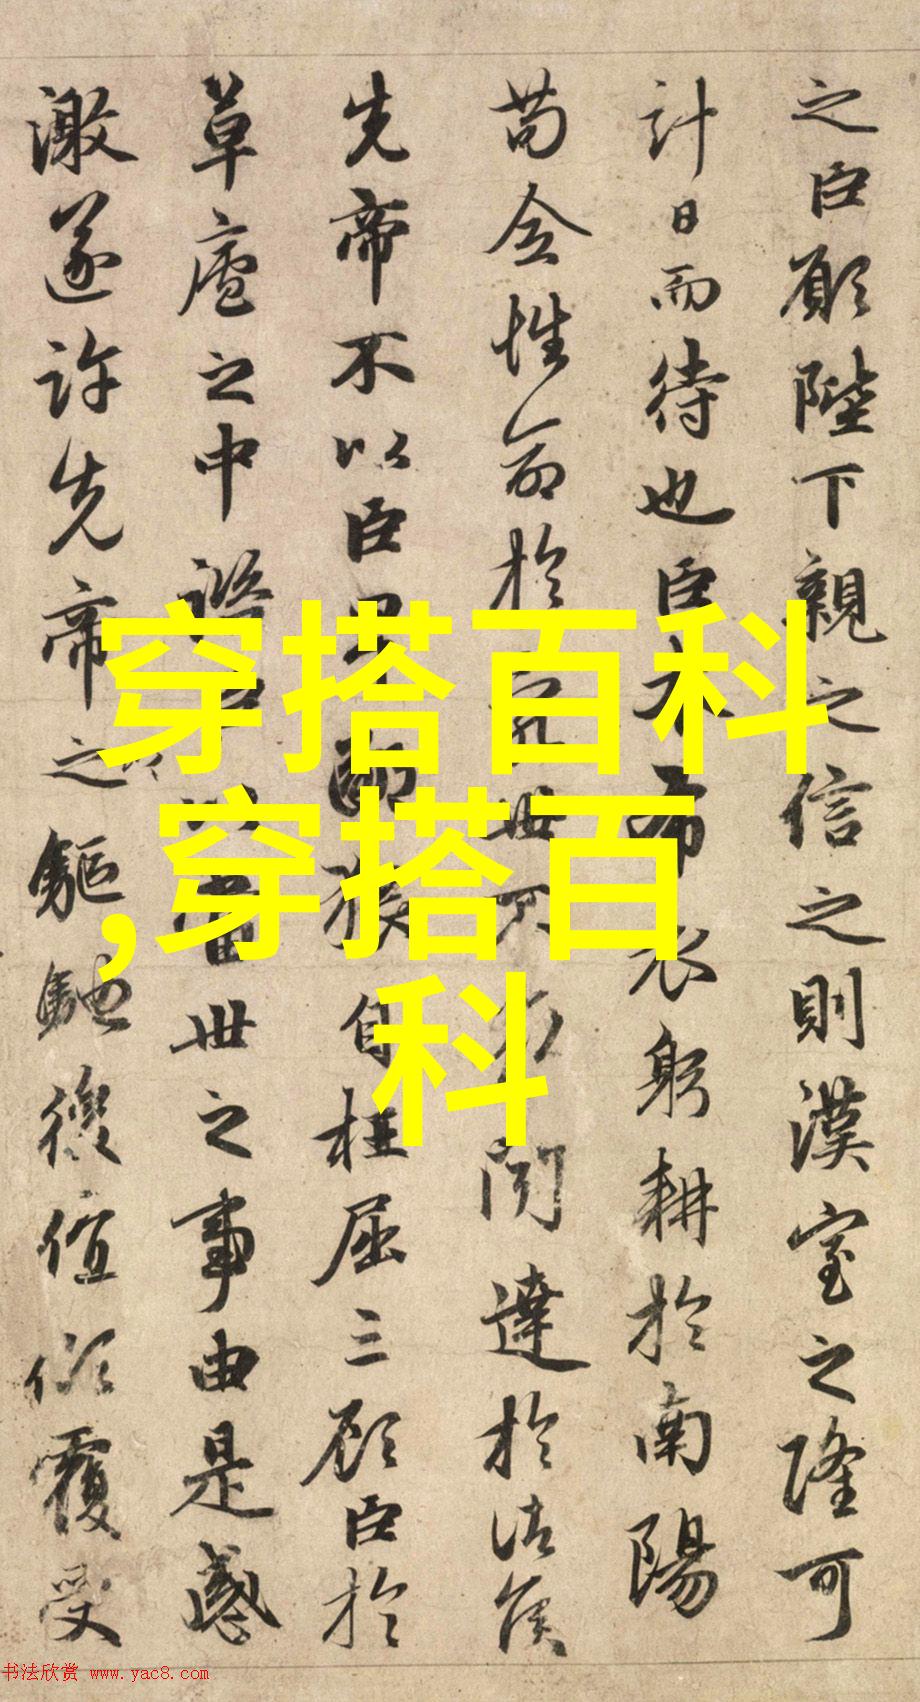 之臣願陛下親之信之則漢室之隆可
計日而待也臣本布衣躬耕於南陽
苟全性命於世不求聞達於諸侯
先帝不以臣卑鄙猥自枉屈三顧臣於
草廬之中諮臣以當世之事由是感
激遂許先帝之驅馳後值傾覆受
穿搭百科
,穿搭百
科
书法欣赏 www.yac8.com